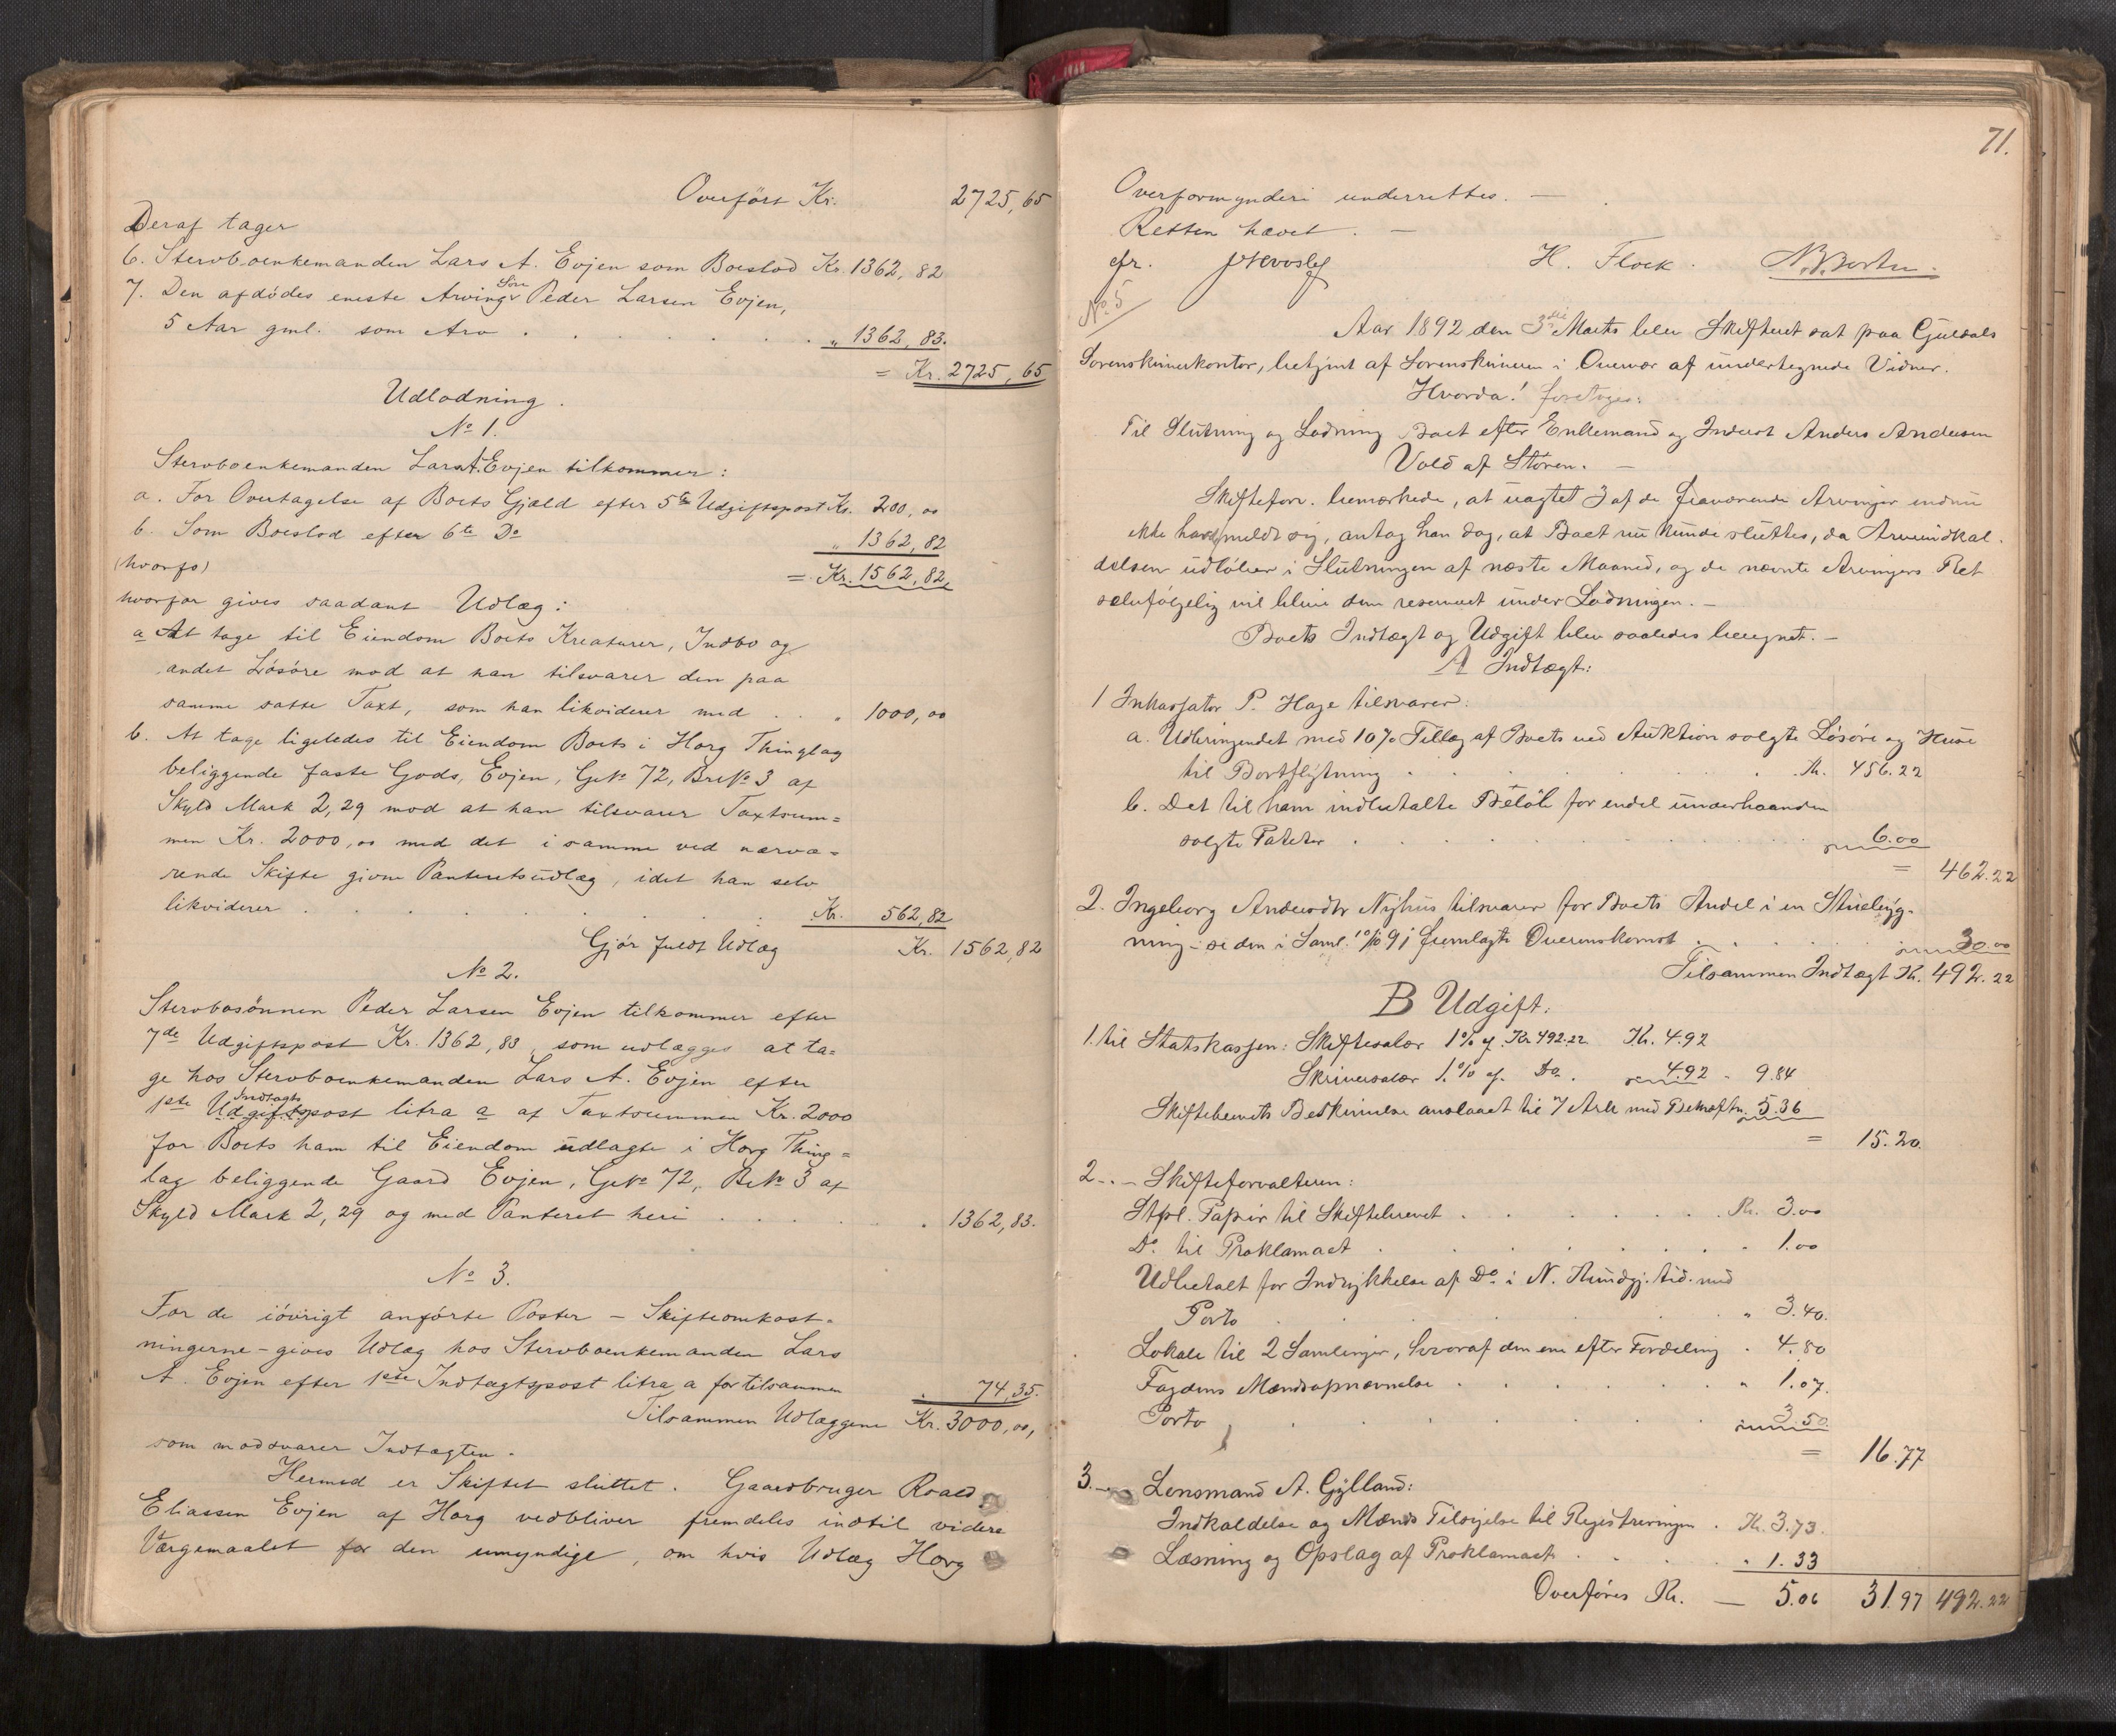 Overført Kr. 2725,65
Deraf tager
6. Stervboenkemanden Lars A. Evjen som Boeslod Kr. 1362,82
7. Den afdødes eneste Arving Søn Peder Larsen Evjen,
5 Aar gml. som Arv . . . . . . „ 1362,83.
= Kr. 2725,65
Udlodning.
No 1.
Stervboenkemanden Lars A. Evjen tilkommer:
a. For Overtagelse af Boets Gjæld efter 5te Udgiftspost Kr. 200,00
b. Som Boeslod efter 6te Do „ 1362,82
(hvorfo) = Kr. 1562,82,
hvorfor gives saadant Udlæg:
a At tage til Eiendom Boets Kreaturer, Indbo og
andet Løsøre mod at han tilsvarer den paa
samme satte Taxt, som han likviderer med . . „ 1000,00
b. At tage ligeledes til Eiendom Boets i Horg Thinglag
beliggende faste Gods, Evjen, GNo 72, BrNo 3 af
Skyld Mark 2,29 mod at han tilsvarer Taxtsum=
men Kr. 2000,00 med det i samme ved nærvæ=
rende Skifte givne Panteretsudlæg, idet han selv
likviderer . . . . . . . Kr. 562,82
Gjør fuldt Udlæg Kr. 1562,82
No 2.
Stervbosønnen Peder Larsen Evjen tilkommer efter
7de Udgiftspost Kr. 1362,83, som udlægges at ta=
ge hos Stervboenkemanden Lars A. Evjen efter
1ste Udgiftspost Indtægts litra a af Taxtsummen Kr. 2000
for Boets ham til Eiendom udlagte i Horg Thing=
lag beliggende Gaard Evjen, GNo 72, BNo 3 af
Skyld Mark 2,29 og med Panteret heri . . . . . . 1362,83.
No 3.
For de iøvrigt anførte Poster – Skifteomkost=
ningerne – gives Udlæg hos Stervboenkemanden Lars
A. Evjen efter 1ste Indtægtspost litra a for tilsammen . 74,35.
Tilsammen Udlæggene Kr. 3000,00,
som modsvarer Indtægten.
Hermed er Skiftet sluttet. Gaardbruger Roald
Eliassen Evjen af Horg vedbliver fremdeles indtil videre
Værgemaalet for den umyndige, om hvis Udlæg Horg
71.
Overformynderi underrettes. –
Retten hævet. –
H. Flock. N. Borten.
No. 5
Aar 1892 den 3die Marts blev Skifteret sat paa Guldals
Sorenskriverkontor, betjent af Sorenskriveren i Overvær af undertegnede Vidner.
Hvorda! foretoges:
Til Slutning og Lodning Boet efter Enkemand og Inderst Anders Andersen
Vold af Støren. –
Skifteforv. bemærkede, at uagtet 3 af de fraværende Arvinger endnu
ikke havde meldt sig, antog han dog, at Boet nu kunde sluttes, da Arveindkal=
delsen udløber i Slutningen af næste Maaned, og de nævnte Arvingers Ret
selvfølgelig vil blive dem reserveret under Lodningen. –
Boets Indtægt og Udgift blev saaledes beregnet. –
A Indtægt:
1 Inkassator P. Hage tilsvarer:
a. Udbringendet med 10% Tillæg af Boets ved Auktion solgte Løsøre og Huse
til Bortflytning . . . . . . . Kr. 456.22
b. Det til ham indbetalte Beløb for endel underhaanden
solgte Poteter . . . . . . „ 6.00
= 462.22
2. Ingeborg Andersdtr Nyhus tilsvarer for Boets Andel i en Stuebyg=
ning – se den i Saml. 10/10 91 fremlagte Overenskomst . . . . . 30.00
Tilsammen Indtægt Kr. 492.22
B Udgift.
1. til Statskassen: Skiftesalær 1% af Kr 492.22 Kr. 4.92
Skriversalær 1% af Do. „ 4.92 - 9.84
Skiftebrevets Beskrivelse anslaaet til 7 Ark med Bekræftn. 5.36
= 15.20.
2 - „ - Skifteforvalteren:
Stpl. Papir til Skiftebrevet . . . . . . Kr. 3.00
Do. til Proklamaet . . . . . . . „ 1.00
Udbetalt for Indrykkelse af Do i N. Kundgj. tid. med
Porto . . . . . . „ 3.40.
Lokale til 2 Samlinger, hvoraf den ene efter Fordeling . 4.80
Fogdens Mændsopnævnelse . . . . . . „ 1.07.
Porto . . . . . . . 3.50.
= 16.77
3. - „ - Lensmand A. Gylland:
Indkaldelse og Mænds Tilsigelse til Registreringen . Kr. 3.73.
Læsning og Opslag af Proklamaet . . . . „ 1.33
Overføres Kr. – 5.06 31.97 492.22